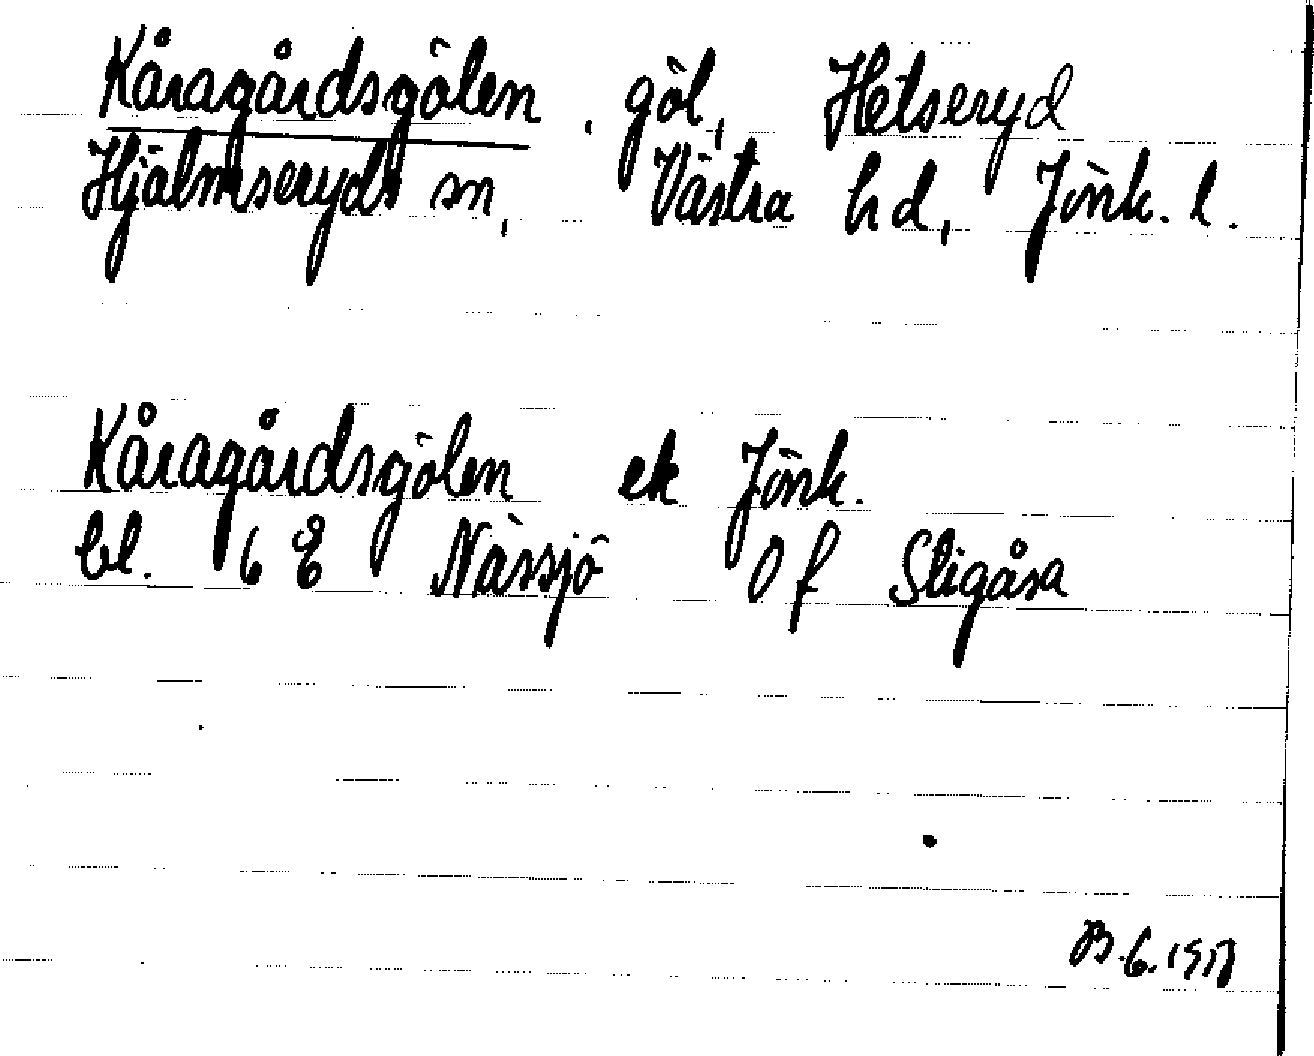 Kåragårdsgölen, göl, Hetseryd
Hjälmseryds sn, Västra hd, Jönk. l.
Kåragårdsgölen ek Jönk.
bl. 6 E Nässjö 0 f Stigåsa
B. 6.